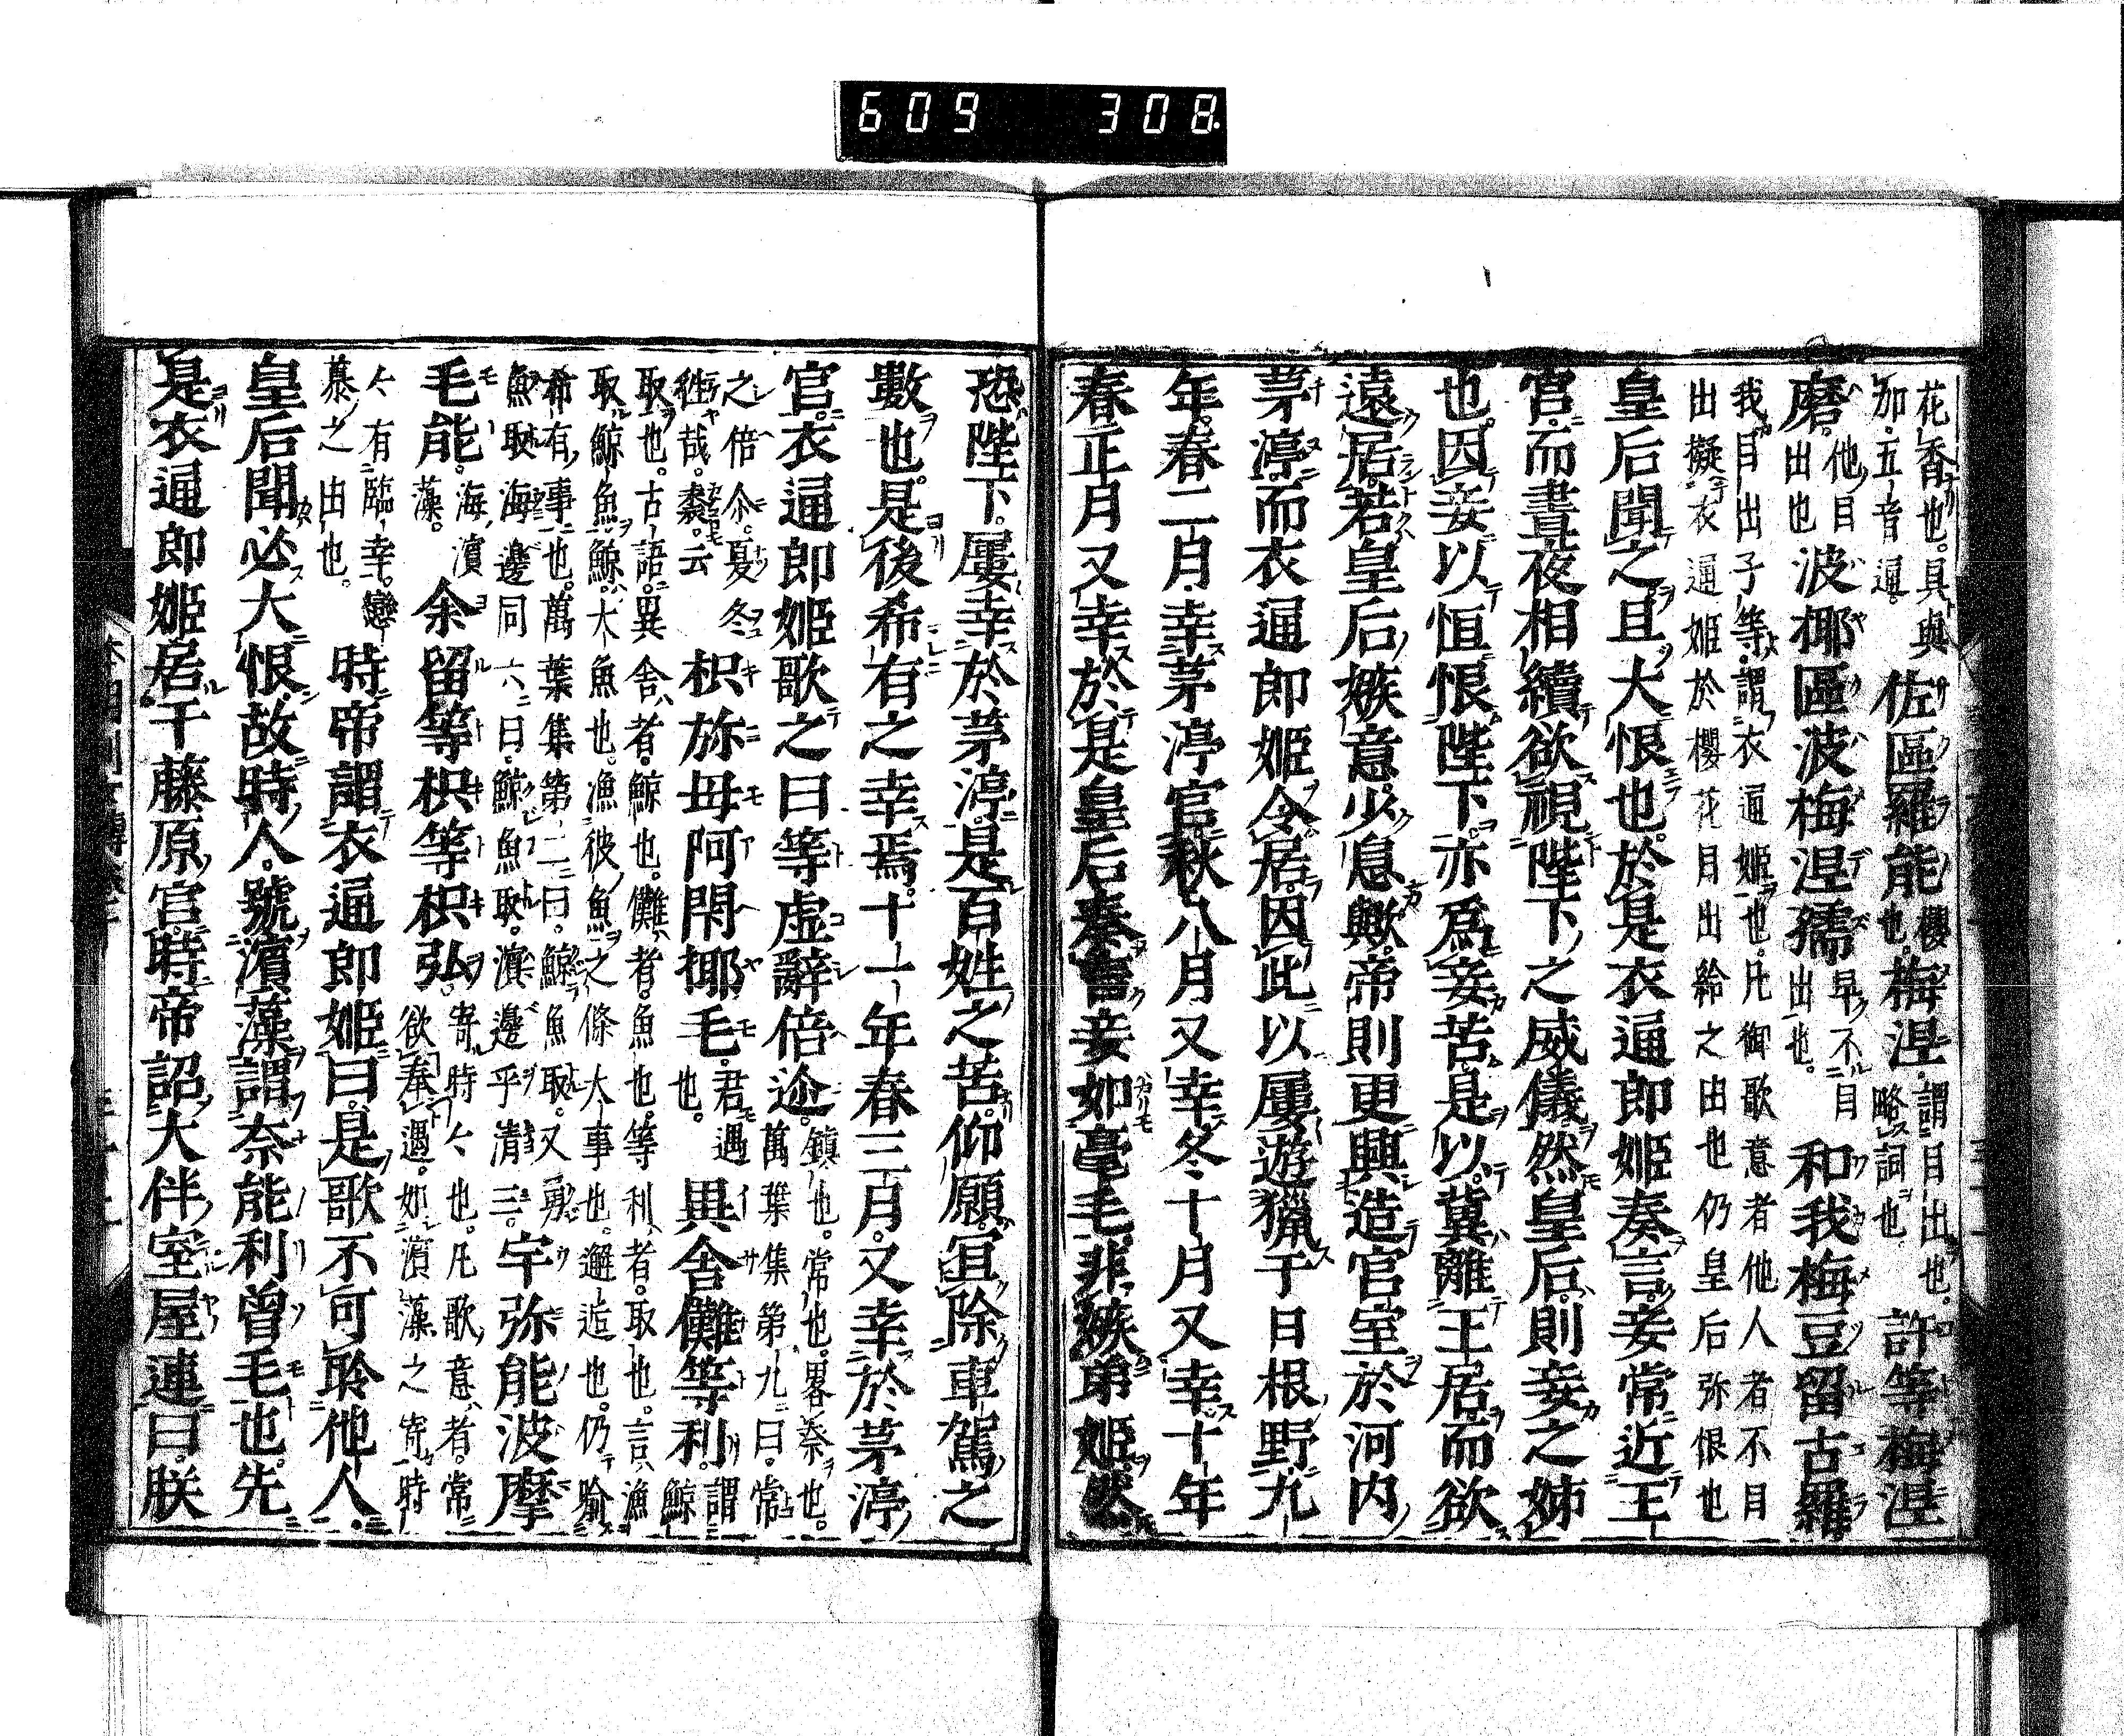 609 308
花香也。具與
加五音通。佐區羅能櫻也。梅涅謂目出也。略詞也。許等梅涅
磨他目出也波椰區波梅涅孺早不目出也。和我梅豆留古羅
我目出子等。謂衣通姬也。凡御歌意者他人者不目
出擬衣通姬於櫻花目出給之由也仍皇后弥恨也
皇后聞之且大恨也。於是衣通郎姬奏言。妾常近王
宮。而晝夜相續欲視陛下之威儀。然皇后則妾之姊
也。因妾以恒恨陛下。亦爲妾苦。是以冀離王居而欲
遠居。若皇后嫉意少息歟。帝則更興造宮室於河内
茅渟。而衣通郎姬令居。因此以屢遊獵于日根野九
年。春二月幸茅渟宮秋八月又幸冬十月又幸十年
春正月又幸於是皇后奏言妾如毫毛。非嫉弟姬然
恐陛下。屢幸於茅渟。是百姓之苦。仰願。宜除車駕之
數也。是後希有之幸焉。十一年春三月。又幸於茅渟
宮。衣通郎姬歌之曰等虛辭倍迩。鎮也。常也。畧奈也。萬葉集第九曰。常
之倍尒。夏冬徃哉。裘。云枳旀毋阿閇椰毛。君遇也。異舎儺等利。謂鯨
取也。古語異舎者。鯨也。儺者。魚也。等利者。取也。言漁
取鯨魚鯨大魚也。漁彼魚之條大事也。邂逅也。仍喻
希有事也。萬葉集第二曰。鯨魚取。又勇
魚取海邊同六曰鯨魚取。濱邊乎清三。宇弥能波摩
毛能。海濱藻。余留等枳等枳弘。寄時々也。凡歌意者。常欲奉遇。如濱藻之寄時
々有臨幸。戀慕之由也。時帝謂衣通郎姬曰。是歌不可聆他人。
皇后聞必大恨。故時人。號濱藻。謂奈能利曾毛也。先
是衣通郎姬居于藤原宮。時帝詔大伴室屋連曰。朕